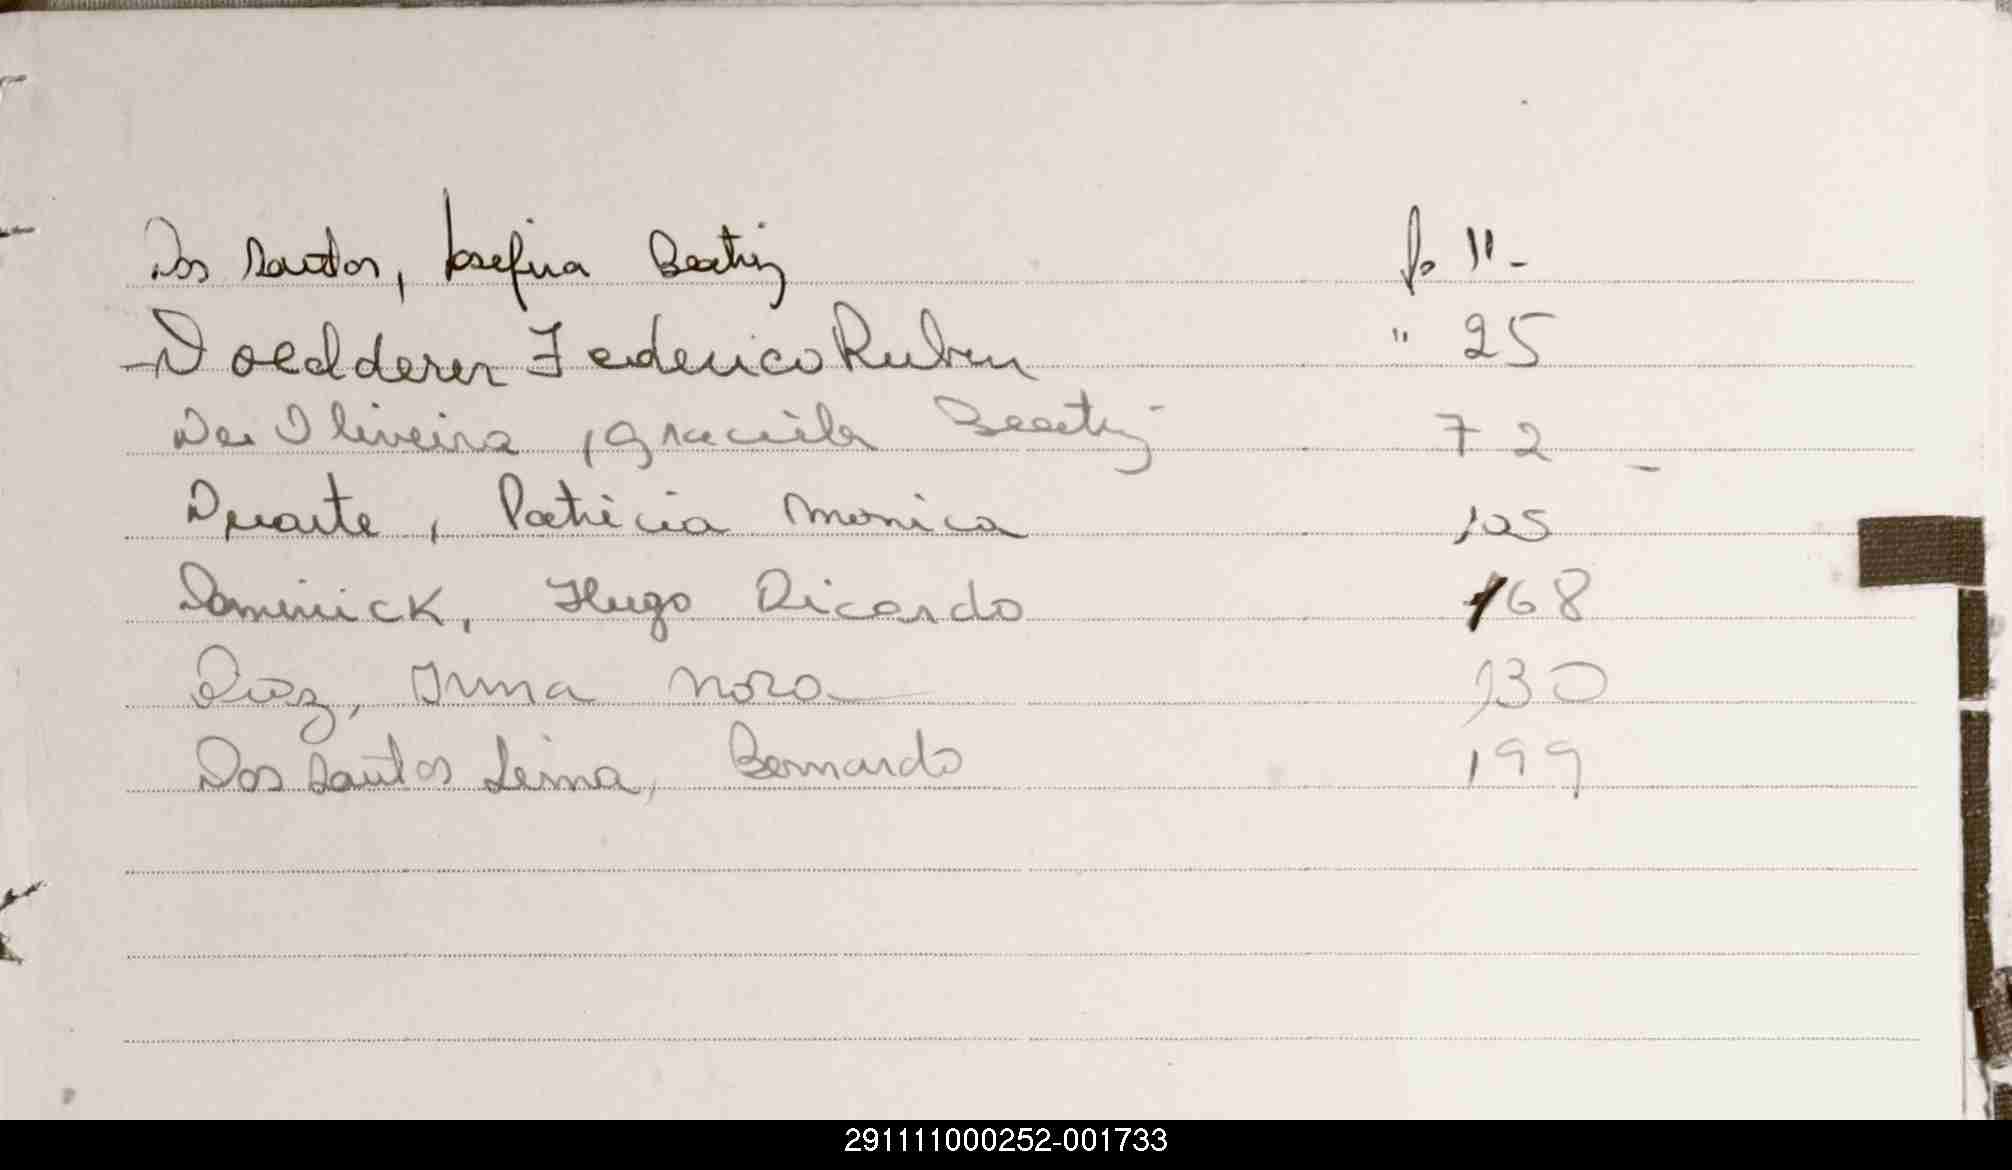 Dos Santos, Josefina Beatriz fo 11-
Doedderer Federico Ruben " 25
De Oliveira, Graciela Beatriz 72 -
Duarte, Patricia Monica 105
Dominick, Hugo Ricardo 168
Diaz, Irma Nora 130
Dos Santos Lima, Bernardo 199
291111000252-001733